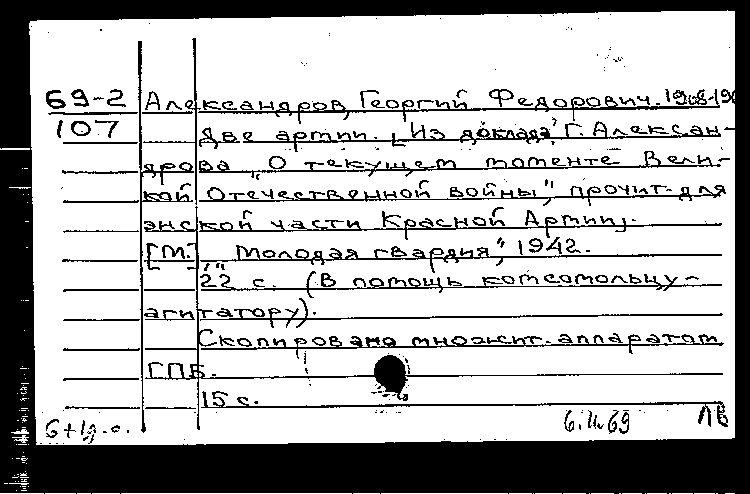 69-2 Александров, Георгий Федорович. 1908-19
107 Две армии. [Из доклада Г. Алексан-
дрова „О текущем моменте Вели-
кой Отечественной войны", прочит. для
энской части Красной Армии].
[М.] „Молодая гвардия", 1942.
22 с. (В помощь комсомольцу-
агитатору).
Скопировано множит. аппаратом
ГПБ.
15 с.
6.II.69 ЛВ